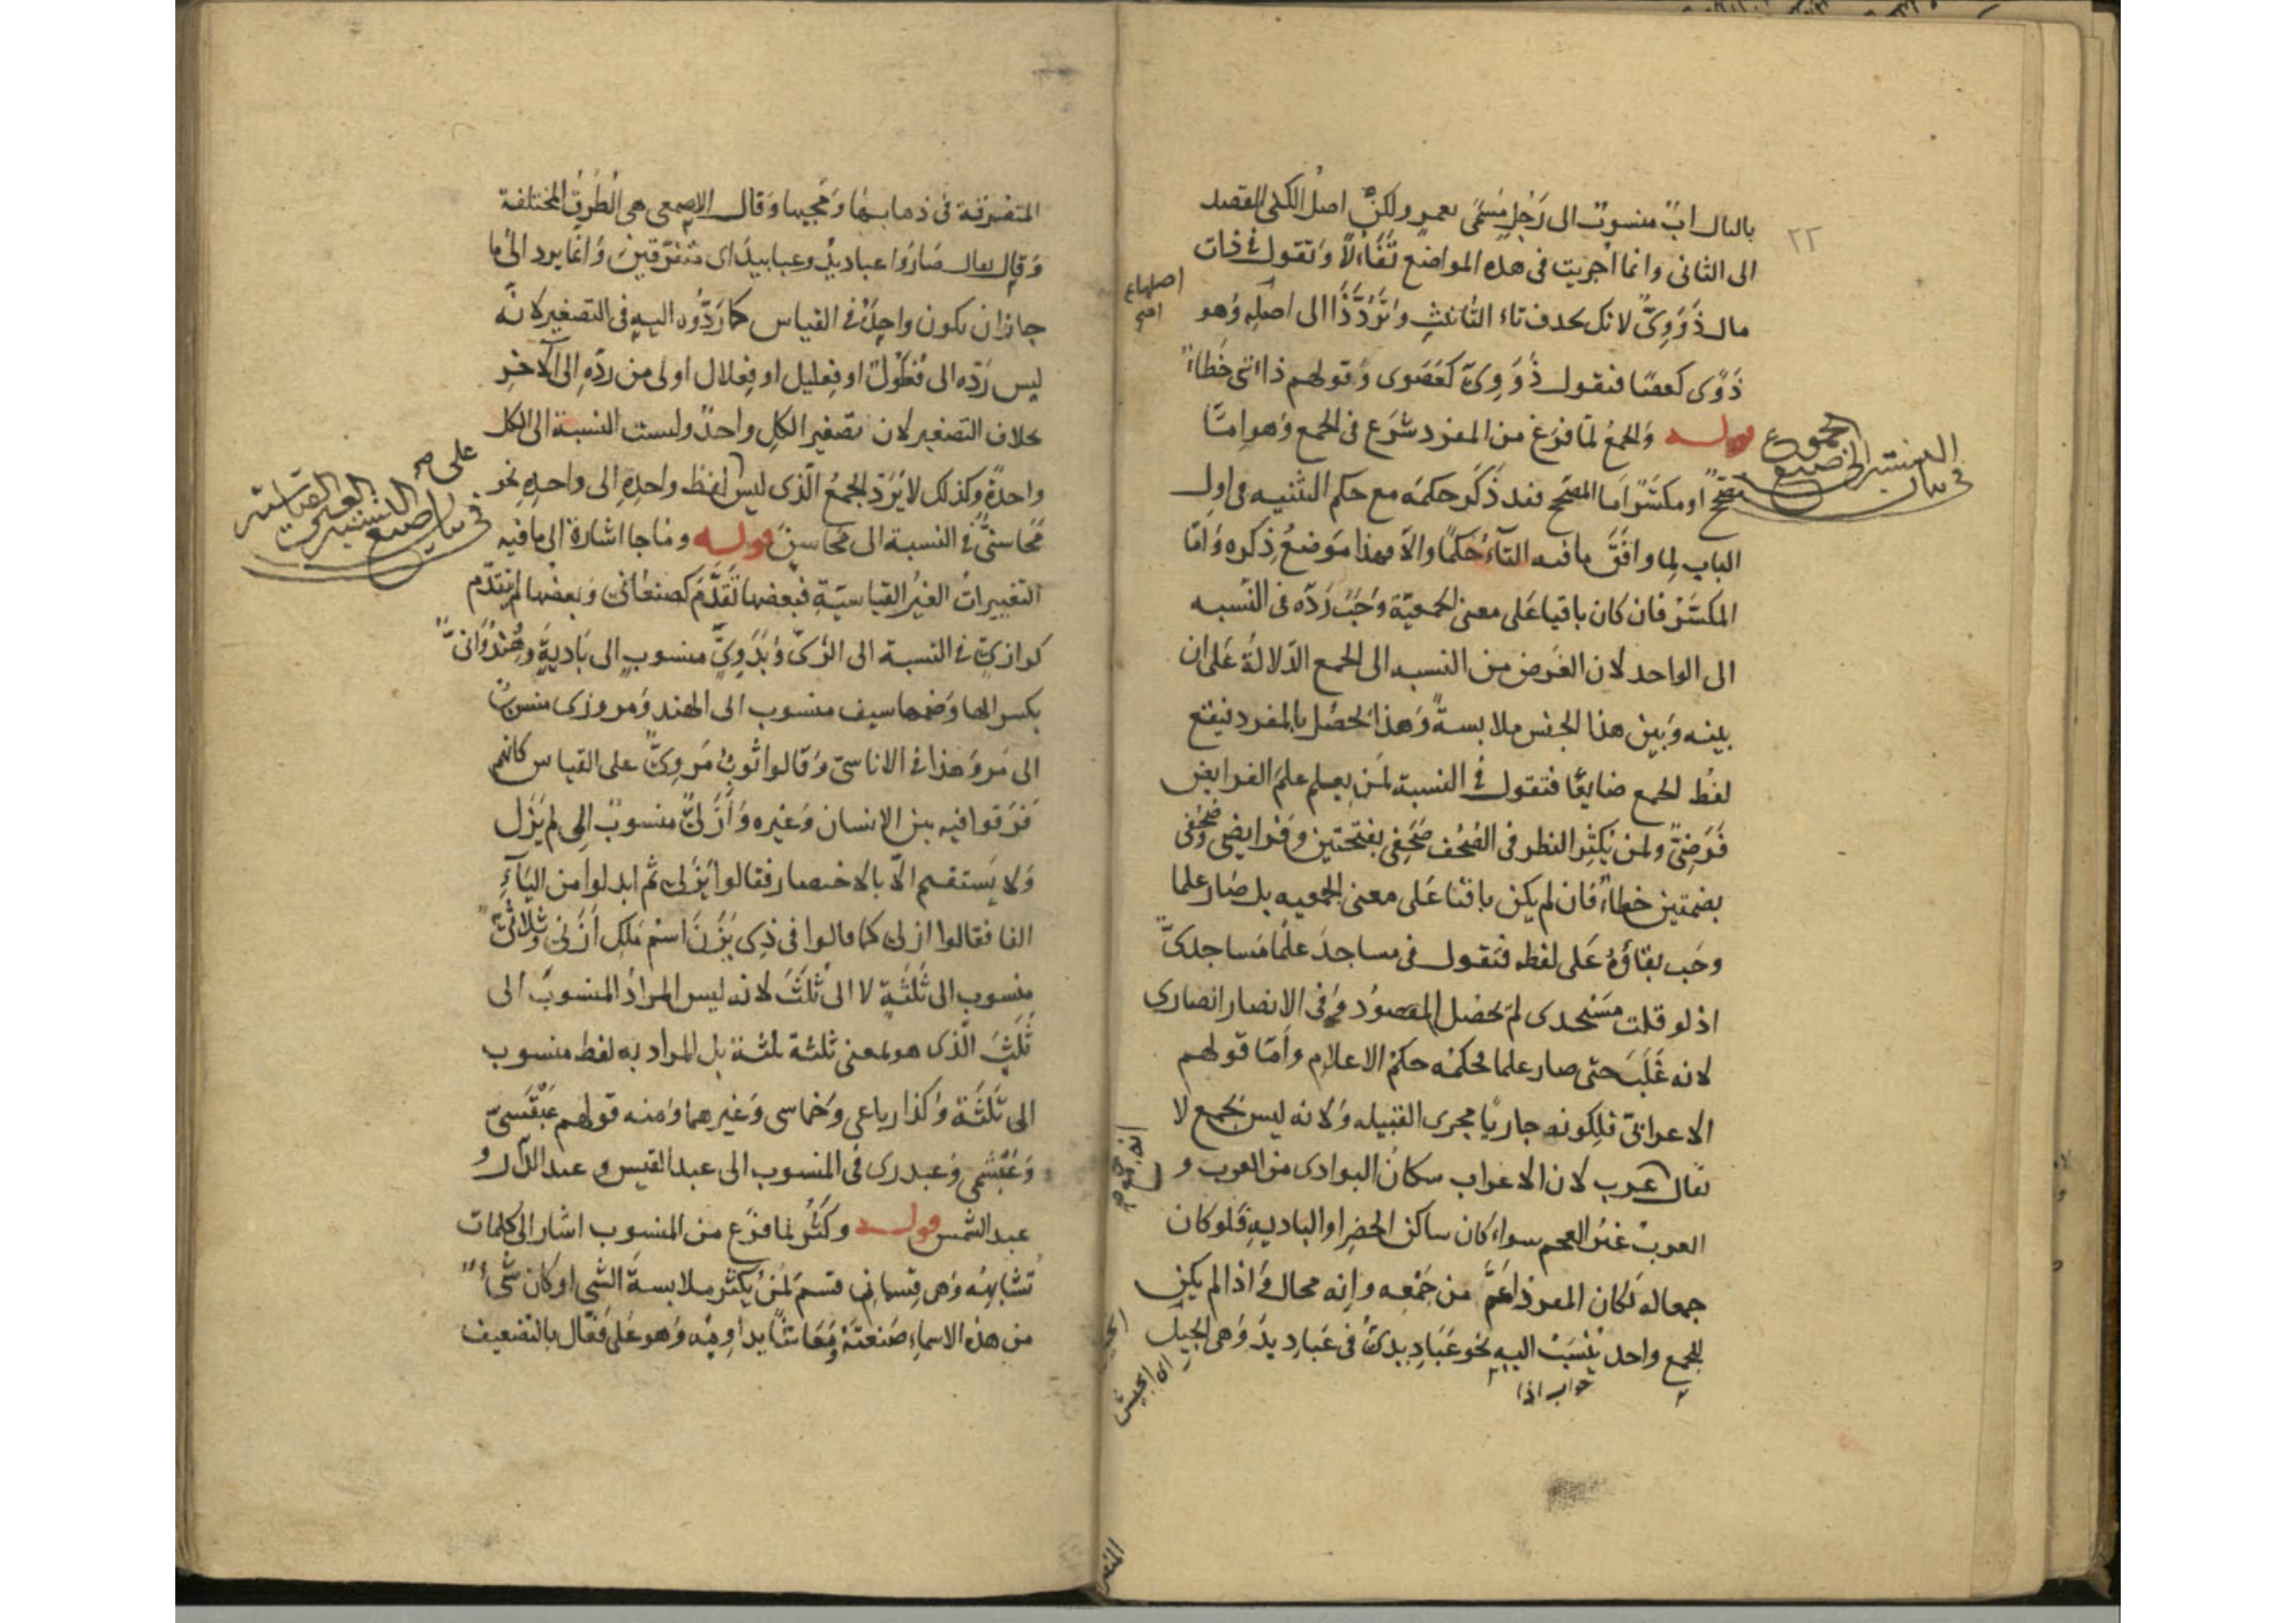 ٢٢
بالبال اب منسوب الى رَجُلٍ مُسمّى بعمرو ولكنّ اصلُ الكنى القصد
الى الثانى وانما اجريت فى هذه المواضع تَفَاءُلاً وتقول فى ذات
مال ذَوَوِىّ لانك تحذف تاء التأنيث وتَرُدُّ ذَا الى اصله وهو
ذَوًى كعصًا فتقول ذَوَوِىّ كعَصَوى وقولهم ذاتى خَطاء
قوله والجمعُ لمّا فرَغ من المفرد شرَع فى الجمع وهو امّا
مصَحّح او مكسّر امّا المصَحّح فقد ذَكَر حكمَه مع حكم التثنيه فى اول
الباب لِما وافَقَ ما فيه التآءُ حُكمًا والاّ فهذا مَوضعُ ذِكره وامّا
المكسّر فان كان باقيا عَلى معنى الجمعيّة وجَبَ رَدّه فى النّسبه
الى الواحد لان الغَرض من النسبه الى الجمع الدّلالةُ عَلى ان
بينه وَبين هذا الجنس ملابسةً وَهذا يحصُل بالمفرد فيقع
لفظ الجمع ضايعًا فتقول فى النسبة لمن يعلم علمَ الفرايض
فَرَضِىّ ولمن يُكثِر النظر فى الصُحُف صَحَفِى بفتحتين وفرايضى وصُحُفى
بضمتين خطاء فان لم يكن باقيًا عَلى معنى الجمعيه بل صَار علما
وجَب بقاؤهُ عَلى لفظه فتقول فى مساجدَ علمًا مَساجدىّ
اذ لو قلت مَسْجدى لم يحصُل المقصود وَفى الانصار انصارى
لانه غَلَبَ حتى صار علما فحكمُه حكمُ الاعلام وامّا قولهم
الاعرابىّ فلِكونه جاريًا مجرى القبيله وَلانه ليس بجمع لا
يقال عرب لان الاعراب سكانُ البوادى من العرب و
العربُ غيرُ العجم سواء كان ساكن الحضر او الباديهِ فَلو كان
جمعا له لكان المفرد اعَمَّ من جَمْعِه وانه محال وَاذا لم يكن
للجمع واحد يُنسَبُ اليه نحو عَبَادِيدىّ فى عَبادِيدَ وَهى الخيل
جواب اذا
المجموع
اى الجيش
المتفرقة فى ذهابها وَمجيها وَقال الاصمعى هى الطُرقُ المختلفة
وَقال يقال صَارُوا عباديدَ وعبابيدَ اى متفرّقينَ وَانما يرد الى ما
جاز ان يكون واحدَه فى القياس كما رَدُّوه اليه فى التصغير لانّه
ليس رَدّه الى فُعْلُولٍ او فِعليل او فِعلال اولى من ردّهِ الى الآخر
بخلاف التصغير لان تصغير الكلِ واحدٌ وليست النسبة الى الكل
واحدةً وكذلك لا يُرَدّ الجمعُ الّذى ليس لفظ واحدِه الى واحدِه نحو
مَحاسنىٌّ فى النسبة الى مَحَاسِنَ قوله وما جا اشارة الى ما فيه
التغييراتُ الغيرُ القياسيّةِ فبعضها تَقَدَّمَ كصنعانى وَبعضها لم يتقدّم
كرازىّ فى النسبة الى الرّىّ وَبَدَوِىّ منسوب الى بَاديةٍ وهِنْدُوانىّ
بكسر الها وَضمها سيف منسوب الى الهند وَمروزى منسوبٌ
الى مَرْوَ هَذا فى الاناسىّ وَقالوا ثوبٌ مَروِىٌّ على القياس كانهم
فَرقوا فيه بين الانسان وَغيره وَأزَلىٌّ منسوبٌ الى لم يَزَل
وَلا يَستقيم الاّ بالاختصار فقالوا يَزَلى ثم ابدلوا من اليَآءِ
الفا فقالوا ازلى كما قالوا فى ذِى يَزَنَ اسْم مَلِكٍ اَزَنى وثُلاثىّ
منسوب الى ثَلثَةٍ لا الى ثُلَثَ لانه ليس المرادُ المنسوبَ الى
ثُلَثَ الّذى هو بمعنى ثلثة ثلثة بل المراد به لفظ منسوب
الى ثَلثَة وَكذا رباعى وَخماسى وَغيرهما وَمنه قولهم عَبْقَسىّ
وَعَبْشمى وَعبدرى فى المنسوب الى عبد القيس و عبد الدّار و
عبد الشّمس قوله وكَثُرَ لمّا فرَغ من المنسوب اشار الى كلمات
تشابهُه وَهى قِسمانِ قسمٌ لمن يُكثر ملابسةَ الشئ او كان شئ
من هذه الاسماءِ صَنعتَهُ وَمَعاشًا يداومُه وَهو عَلى فَعّال بالتضعيف